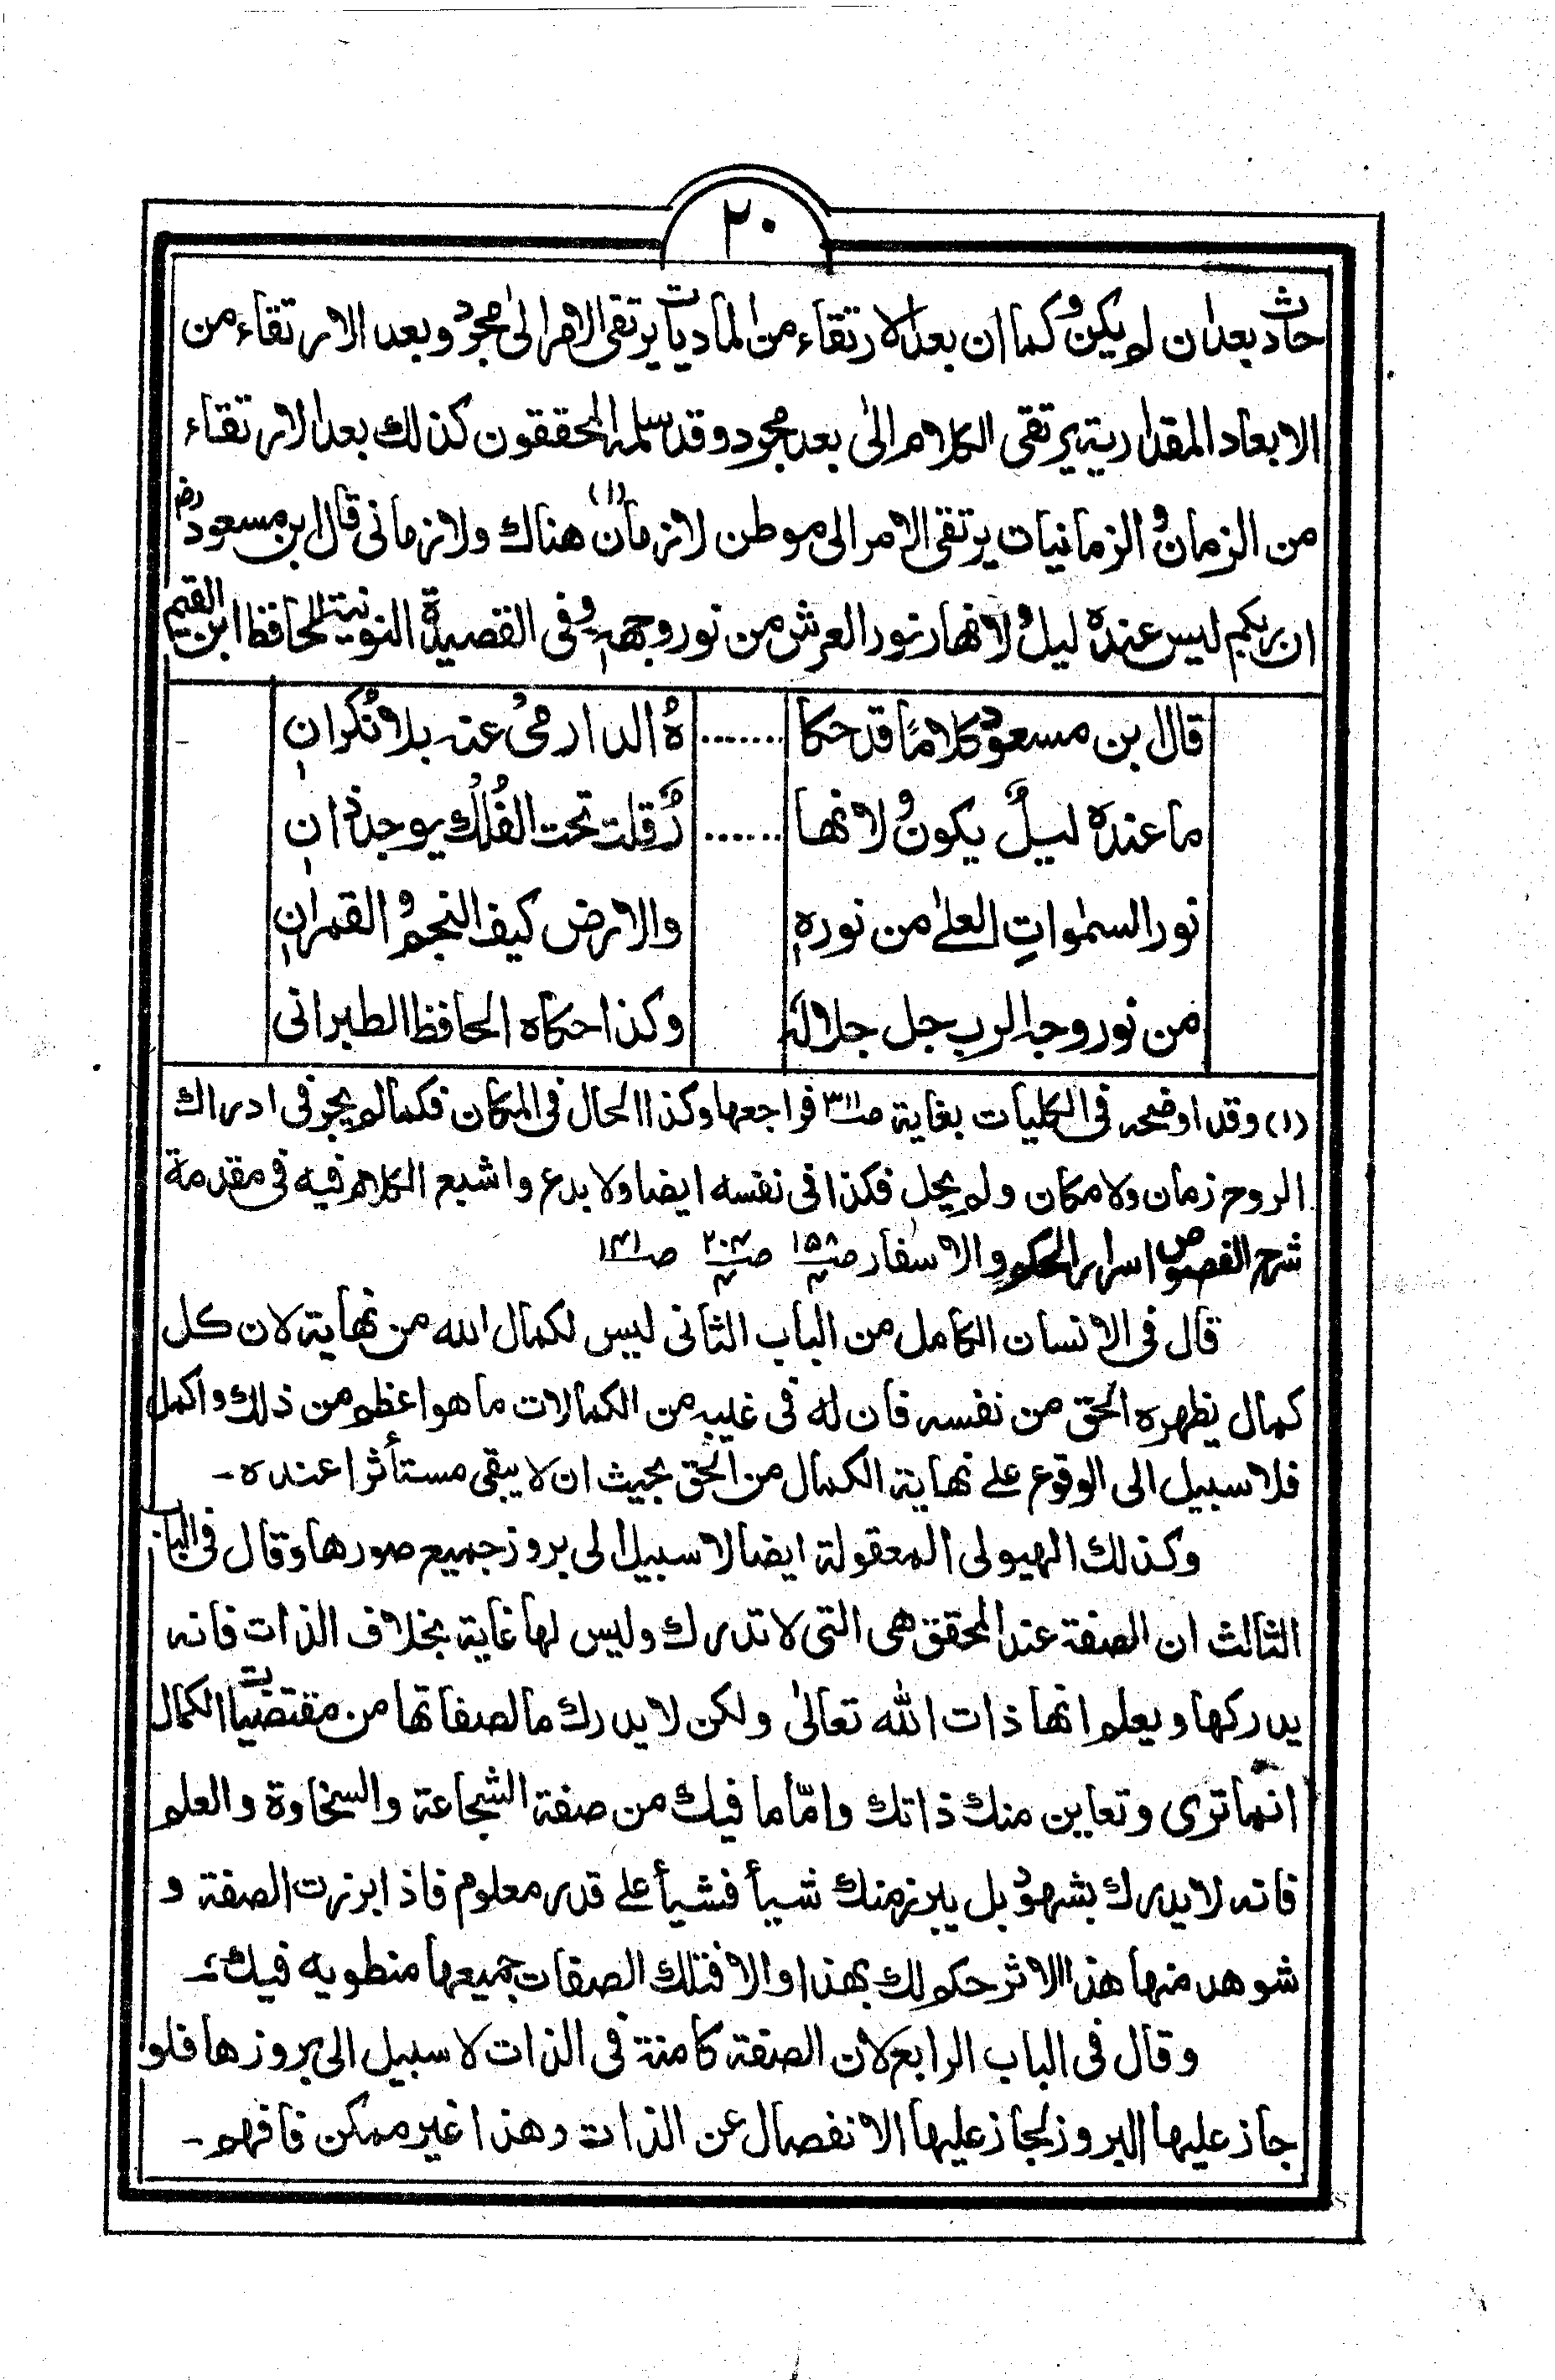 ٢٠
حادث بعد ان لم يكن و كما ان بعد الارتقاء من الماديات يرتقى الامر الىٰ مجرد و بعد الارتقاء من
الابعاد المقدارية يرتقى الكلام الىٰ بعد مجرد وقد سلمه المحققون كذلك بعد الارتقاء
من الزمان و الزمانيات يرتقى الامر الى موطن لا زمان (١) هناك ولا زمانى قال ابن مسعودؓ
ان ربكم ليس عنده ليل و لا نهار نور العرش من نور وجهه و فى القصيدة النونية للحافظ ابن القيم
قال ابن مسعود كلامًا قد حكا ....... هُ الدارمىُّ عنه بلا نُكرانِ
ما عنده ليلٌ يكونُ و لا نها ...... رٌ قلت تحت الفُلُك يوجد ذانِ
نور السمٰواتِ العلىٰ من نورهٖ والارض كيف النجم و القمرانِ
من نور وجه الرب جل جلالهَ وكذا حكاه الحافظ الطبرانى
(١) وقد اوضحه فى الكليات بغاية صـ٣١١ فراجعها وكذا الحال فى المكان فكما لم يجر فى ادراك
الروح زمان ولا مكان ولم يحل فكذا فى نفسه ايضا ولا بدع واشبع الكلام فيه فى مقدمة
شرح الفصوص اسرار الحكم والاسفار صـ١٥٨/٣ صـ٢٠٣/٣ صـ١٣١
قال فى الانسان الكامل من الباب الثانى ليس لكمال الله من نهاية لان كل
كمال يظهره الحق من نفسه فان له فى غيبه من الكمالات ما هو اعظم من ذلك واكمل
فلا سبيل الى الوقوع علے نهاية الكمال من الحق بحيث ان لا يبقى مستأثرا عنده -
وكذلك الهيولى المعقولة ايضا لا سبيل الى بروز جميع صورها وقال فى الباب
الثالث ان الصفة عند المحقق هى التى لا تدرك وليس لها غاية بخلاف الذات فانه
يدركها ويعلم انها ذات الله تعالىٰ ولكن لا يدرك ما لصفاتها من مقتضيات الكمال
انما ترى وتعاين منك ذاتك وامّا ما فيك من صفة الشجاعة والسخاوة والعلم
فانه لا يدرك بشهود بل يبرز منك شيأ فشيأ علے قدر معلوم فاذا برزت الصفة و
شوهد منها هذا الاثر حكم لك بهذا والا فتلك الصفات جميعها منطويه فيك -
وقال فى الباب الرابع لان الصفة كامنة فى الذات لا سبيل الى بروزها فلو
جاز عليها البروز لجاز عليها الانفصال عن الذات وهذا غير ممكن فافهم -